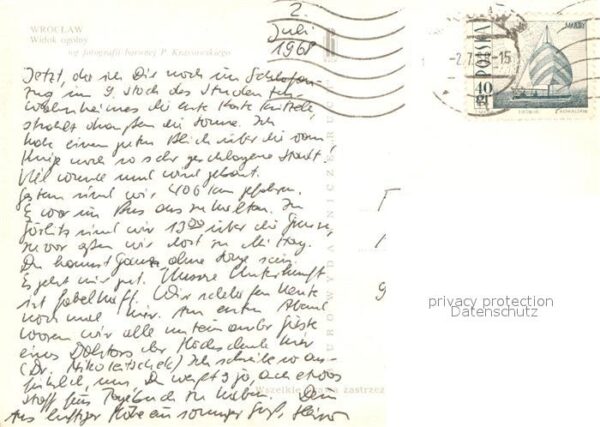 WROCŁAW
Widok ogólny
wg fotografii barwnej P. Krassowskiego
2.
Juli
1968
-2.7. -15
POLSKA
40
GR
Jetzt, da ich Dir noch im Schlafan-
zug im 9. Stock des Studenten-
wohnheimes die erste Karte kritzele,
strahlt draußen die Sonne. Ich
habe einen guten Blick über die vom
Krieg noch so sehr geschlagene Stadt!
Viel wurde und wird gebaut.
Gestern sind wir 406 km gefahren.
Es war im Bus auszuhalten. In
Görlitz sind wir 13 00 über die Grenze,
zuvor aßen wir dort zu Mittag.
Du kannst ganz ohne Sorge sein.
Es geht mir gut. Unsere Unterkunft
ist fabelhaft. Wir schlafen heute
noch mal hier. Am ersten Abend
waren wir alle Gäste
eines Doktors der Hochschule hier
(Dr. ) Ich schreibe so aus-
führlich, um, Du weißt's ja, auch etwas
Stoff fürs Tagebuch zu haben. Dein
Aus luftiger Höhe ein sonniger Gruß,
BIURO WYDAWNICZE RUCH
Wszelkie prawa zastrzeż
privacy protection
Datenschutz